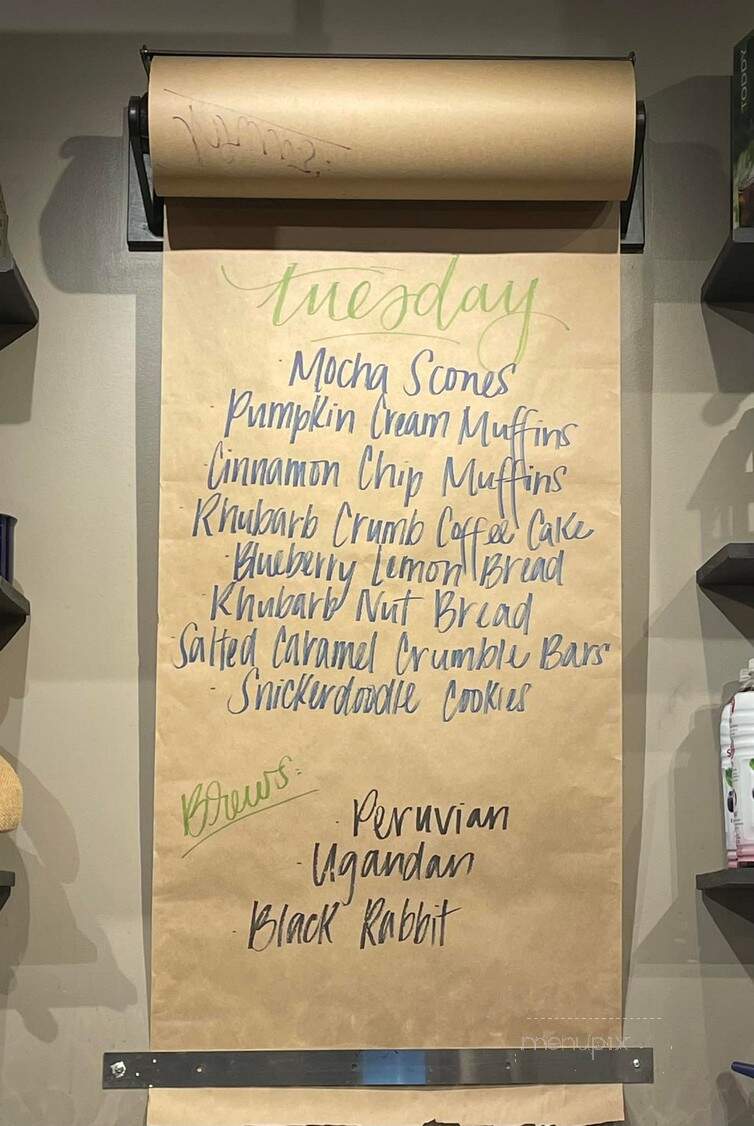 tuesday
· Mocha Scones
· Pumpkin Cream Muffins
· Cinnamon Chip Muffins
· Rhubarb Crumb Coffee Cake
· Blueberry Lemon Bread
· Rhubarb Nut Bread
· Salted Caramel Crumble Bars
· Snickerdoodle Cookies
Brews:
· Peruvian
· Ugandan
· Black Rabbit
menupix